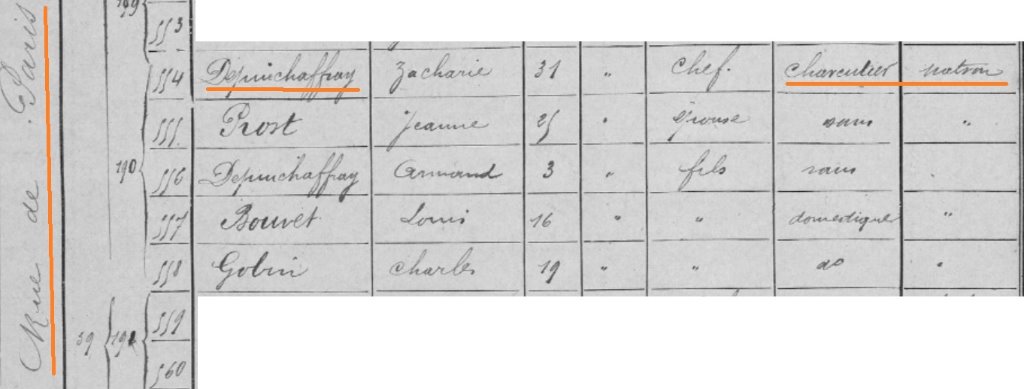 Rue de Paris
199
553
554 Depinchaffray Zacharie 31 " Chef. charcutier patron
555 Prost Jeanne 25 " épouse sans "
190
556 Depinchaffray Armand 3 " fils sans
557 Bouvet Louis 16 " " domestique "
558 Gobin Charles 19 " " do "
559
39 191
560